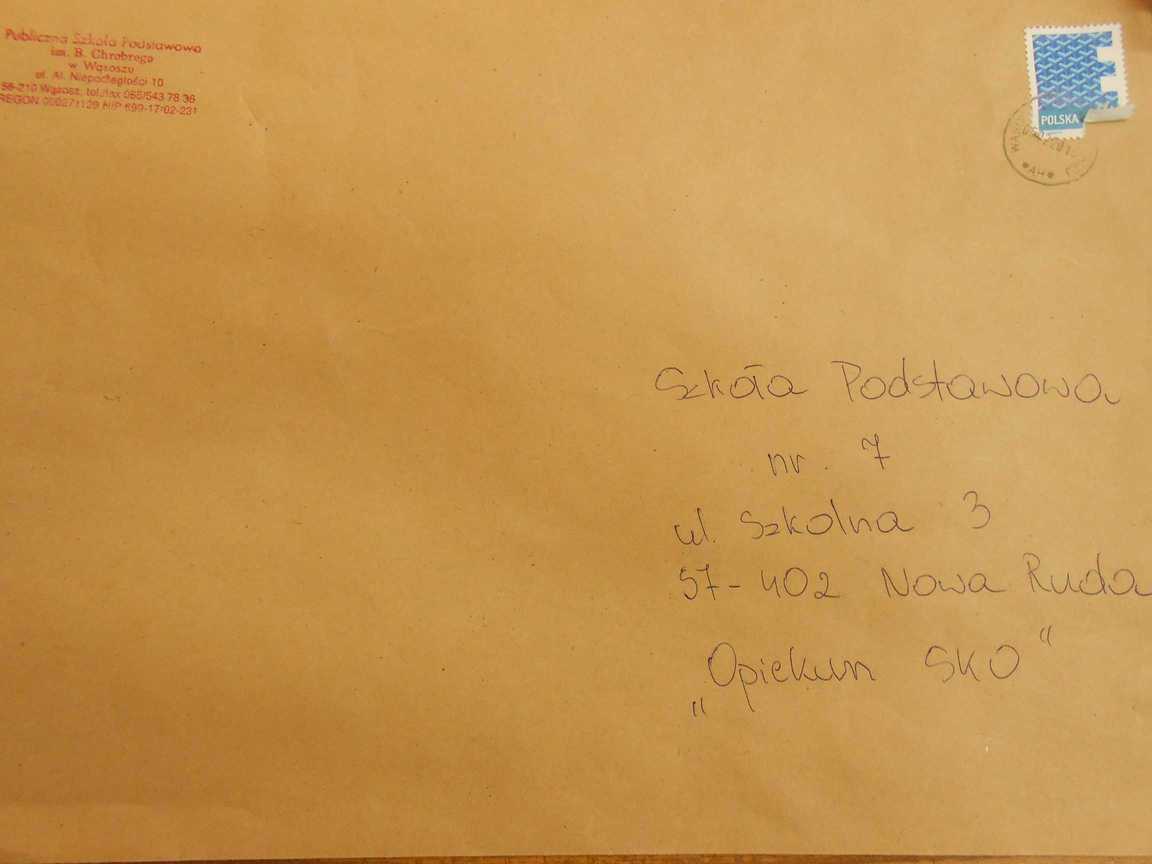 Publiczna Szkoła Podstawowa
im. B. Chrobrego
w Wąsoszu
ul. Al. Niepodległości 10
56-210 Wąsosz, tel./fax 065/543 78 36
REGON 000271129 NIP 699-17-02-231
POLSKA
AH
Szkoła Podstawowa
nr. 7
ul. Szkolna 3
57-402 Nowa Ruda
„Opiekun SKO"